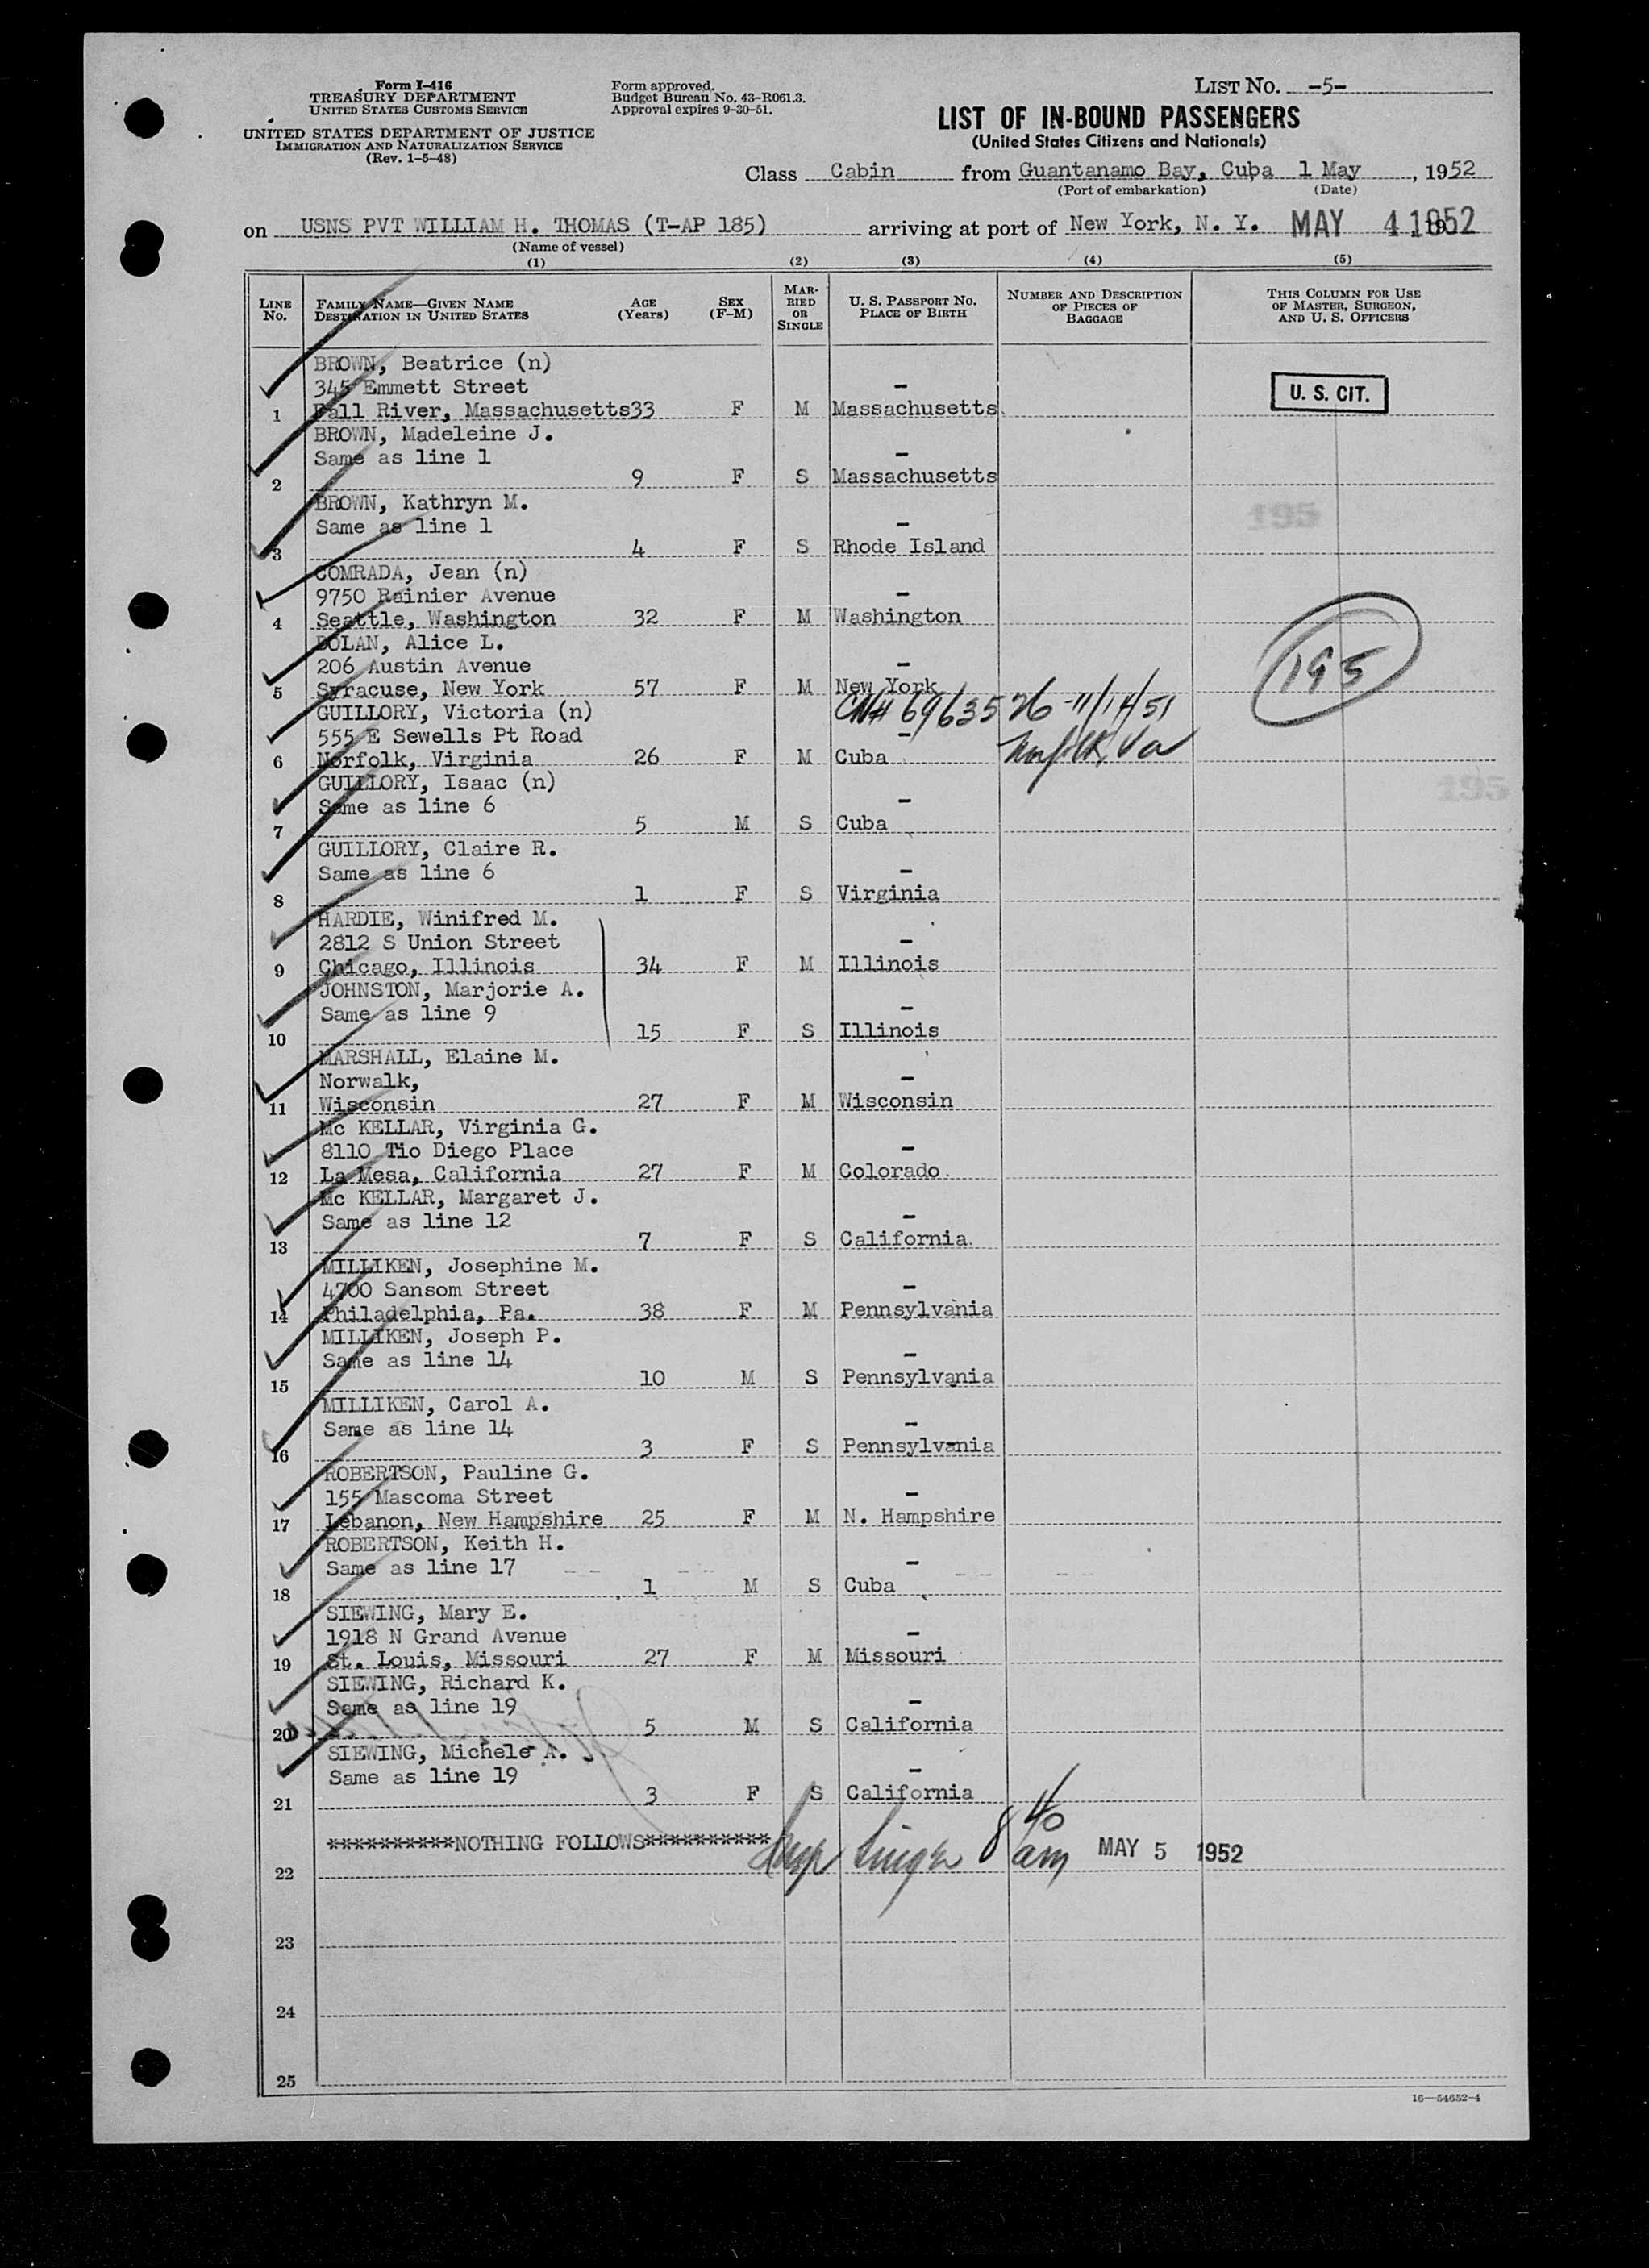 Form I-416
TREASURY DEPARTMENT
UNITED STATES CUSTOMS SERVICE
UNITED STATES DEPARTMENT OF JUSTICE
IMMIGRATION AND NATURALIZATION SERVICE
(Rev. 1-5-48)
Form approved.
Budget Bureau No. 43-R061.3.
Approval expires 9-30-51.
LIST NO. -5-
LIST OF IN-BOUND PASSENGERS
(United States Citizens and Nationals)
Class Cabin from Guantanamo Bay, Cuba 1 May, 1952
(Port of embarkation) (Date)
on USNS PVT WILLIAM H. THOMAS (T-AP 185) arriving at port of New York, N. Y. MAY 4 1952
(Name of vessel)
(1) (2) (3) (4) (5)
LINE NO.
FAMILY NAME—GIVEN NAME
DESTINATION IN UNITED STATES
AGE (Years)
SEX (F-M)
MARRIED OR SINGLE
U. S. PASSPORT NO.
PLACE OF BIRTH
NUMBER AND DESCRIPTION OF PIECES OF BAGGAGE
THIS COLUMN FOR USE OF MASTER, SURGEON, AND U. S. OFFICERS
BROWN, Beatrice (n)
345 Emmett Street -
1 Fall River, Massachusetts 33 F M Massachusetts
U. S. CIT.
BROWN, Madeleine J.
Same as line 1 -
2 9 F S Massachusetts
BROWN, Kathryn M.
195
Same as line 1 -
3 4 F S Rhode Island
COMRADA, Jean (n)
9750 Rainier Avenue -
4 Seattle, Washington 32 F M Washington
DOLAN, Alice L.
206 Austin Avenue -
5 Syracuse, New York 57 F M New York
195
GUILLORY, Victoria (n) CN# 6963526 - 11/14/51
555 E Sewells Pt Road -
6 Norfolk, Virginia 26 F M Cuba Norfolk, Va
GUILLORY, Isaac (n)
195
Same as line 6 -
7 5 M S Cuba
GUILLORY, Claire R.
Same as line 6 -
8 1 F S Virginia
HARDIE, Winifred M.
2812 S Union Street -
9 Chicago, Illinois 34 F M Illinois
JOHNSTON, Marjorie A.
Same as line 9 -
10 15 F S Illinois
MARSHALL, Elaine M.
Norwalk, -
11 Wisconsin 27 F M Wisconsin
Mc KELLAR, Virginia G.
8110 Tio Diego Place -
12 La Mesa, California 27 F M Colorado
Mc KELLAR, Margaret J.
Same as line 12 -
13 7 F S California
MILLIKEN, Josephine M.
4700 Sansom Street -
14 Philadelphia, Pa. 38 F M Pennsylvania
MILLIKEN, Joseph P.
Same as line 14 -
15 10 M S Pennsylvania
MILLIKEN, Carol A.
Same as line 14 -
16 3 F S Pennsylvania
ROBERTSON, Pauline G.
155 Mascoma Street -
17 Lebanon, New Hampshire 25 F M N. Hampshire
ROBERTSON, Keith H.
Same as line 17 -
18 1 M S Cuba
SIEWING, Mary E.
1918 N Grand Avenue -
19 St. Louis, Missouri 27 F M Missouri
SIEWING, Richard K.
Same as line 19 -
20 5 M S California
SIEWING, Michele A.
Same as line 19 -
21 3 F S California
**********NOTHING FOLLOWS**********
8 40 am MAY 5 1952
22
23
24
25
16—54652-4